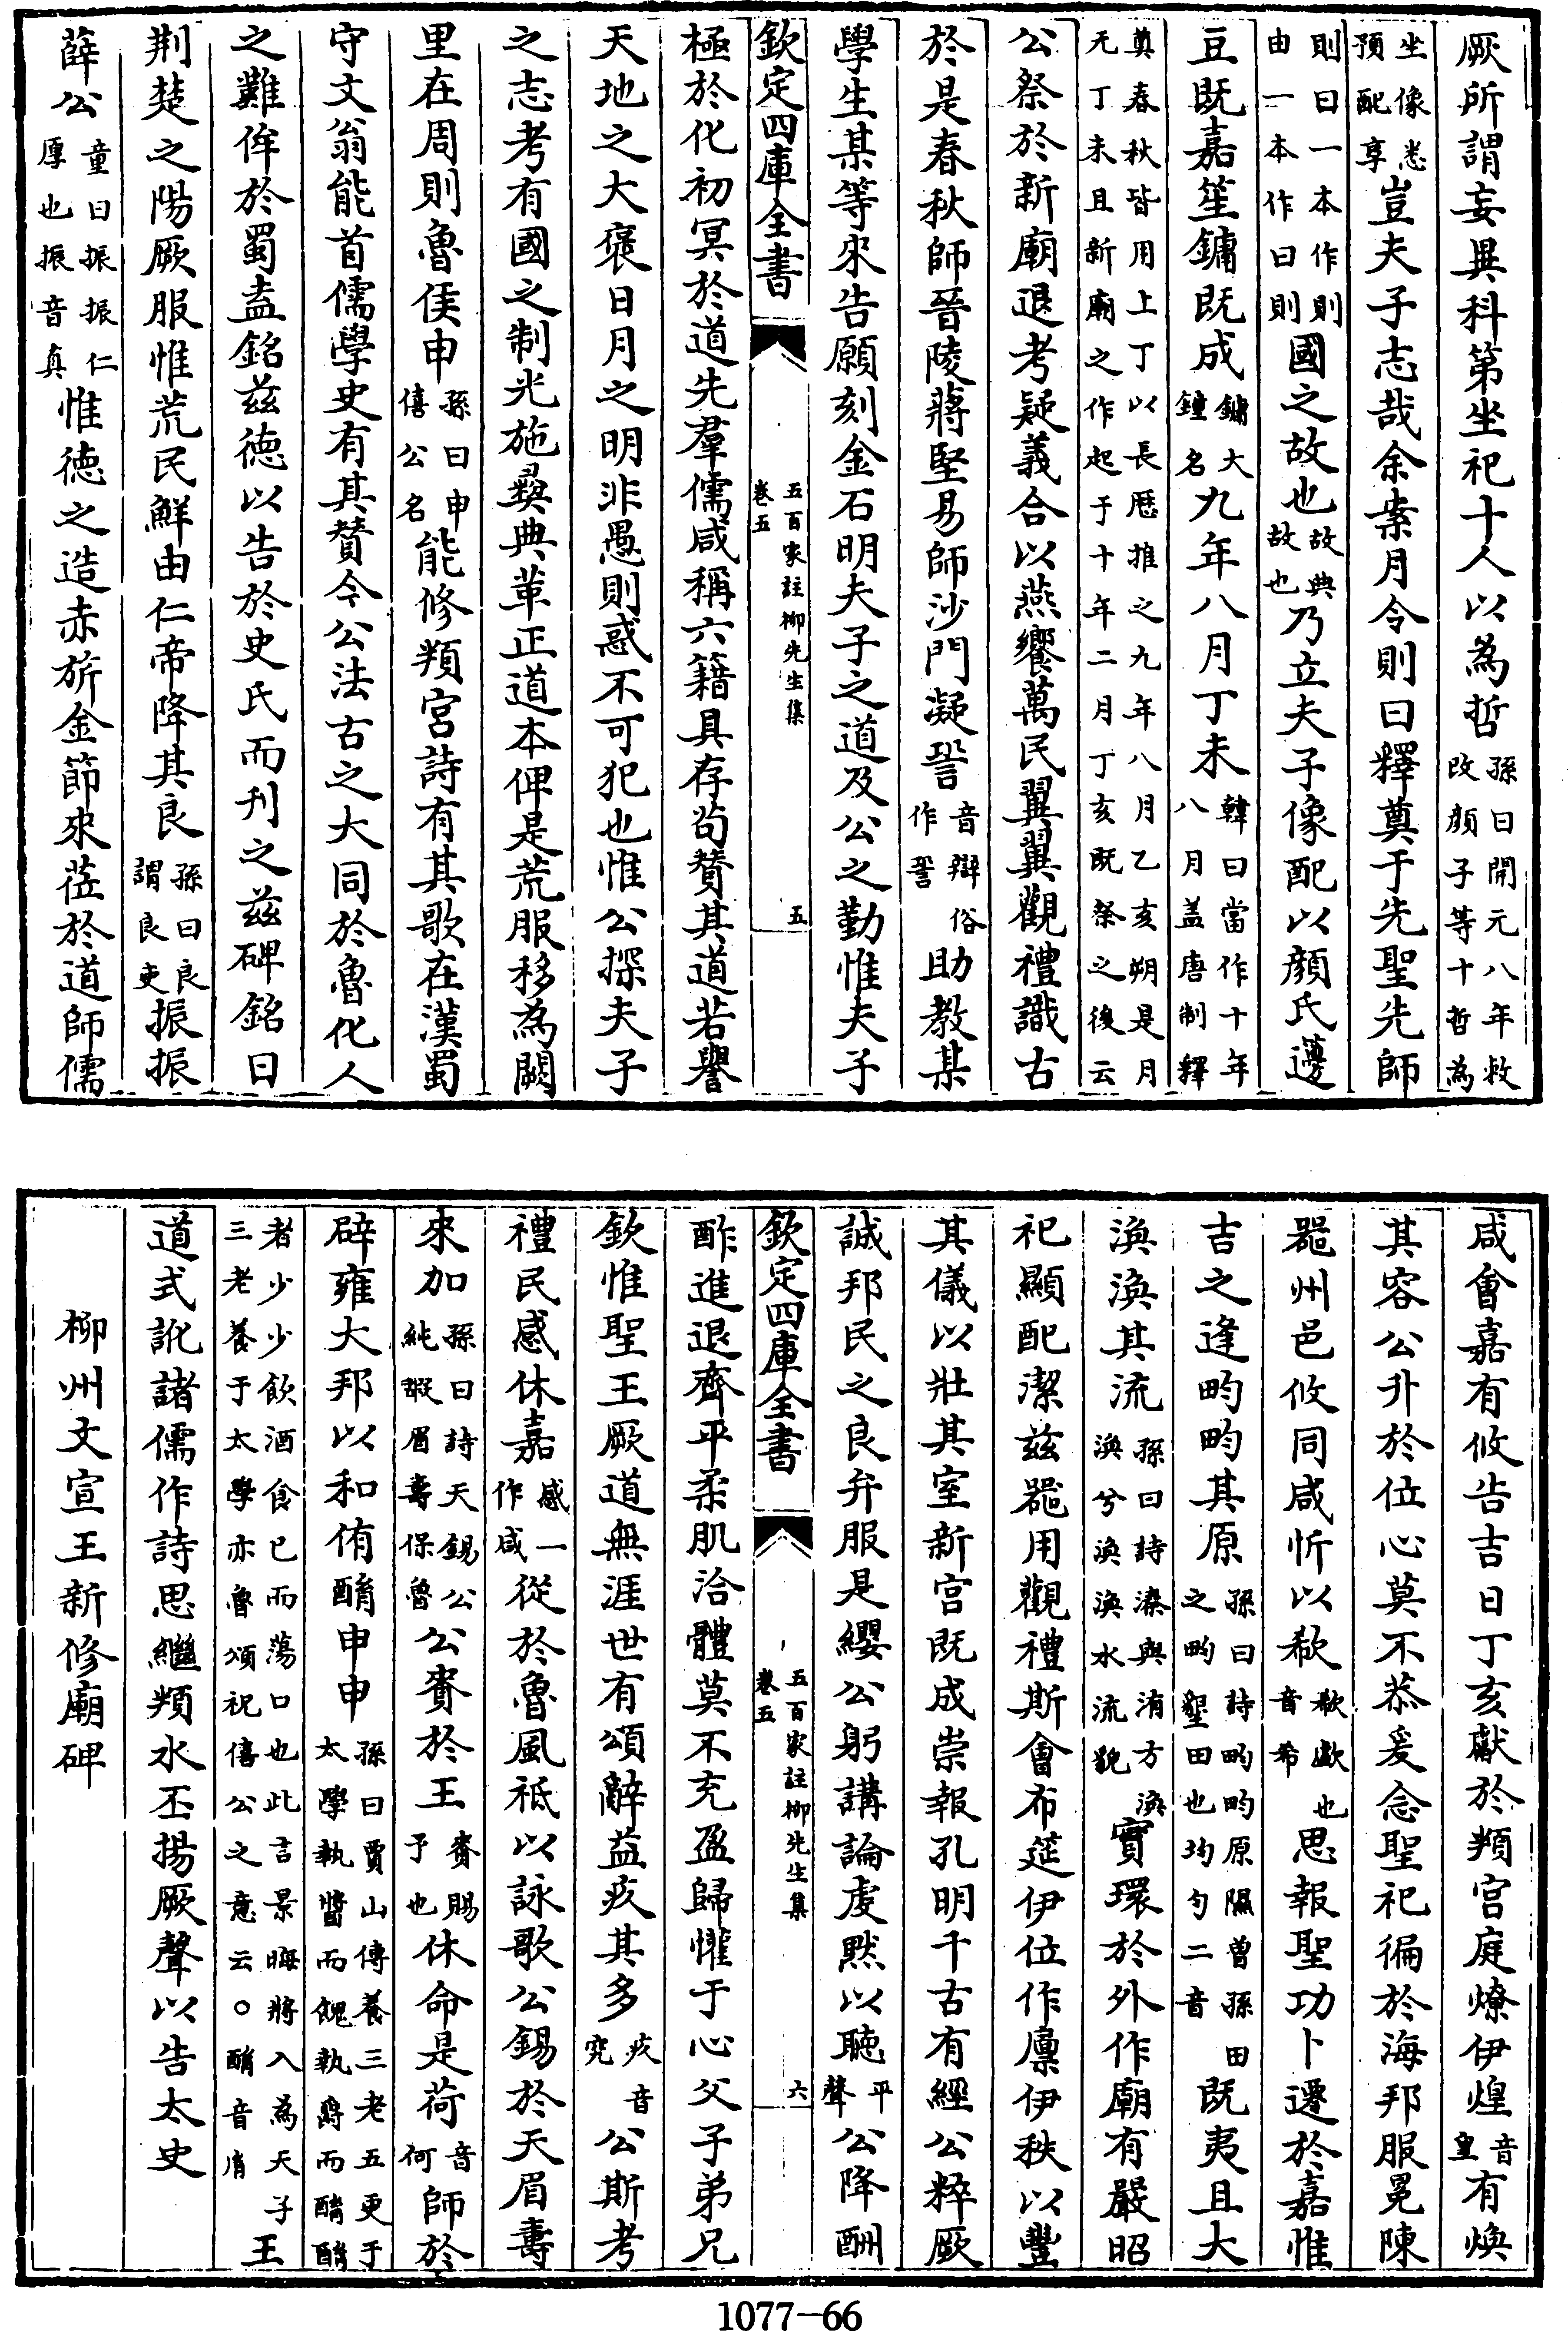 厥所謂妄異科第坐祀十人以為哲孫曰開元八年敕改顔子等十哲為
坐像悉預配享豈夫子志哉余案月令則曰釋奠于先聖先師
則曰一本作則由一本作曰則國之故也故典故也乃立夫子像配以顔氏籩
豆既嘉笙鏞既成鏞大鐘名九年八月丁未韓曰當作十年八月盖唐制釋
奠春秋皆用上丁以長厯推之九年八月乙亥朔是月无丁未且新廟之作起于十年二月丁亥既祭之後云
公祭於新廟退考疑義合以燕饗萬民翼翼觀禮識古
於是春秋師晉陵蔣堅易師沙門凝䛒音辯俗作䛒助教某
學生某等來告願刻金石明夫子之道及公之勤惟夫子
欽定四庫全書
五百家註柳先生集
卷五
五
極於化初冥於道先羣儒咸稱六籍具存苟賛其道若譽
天地之大褒日月之明非愚則惑不可犯也惟公探夫子
之志考有國之制光施彛典革正道本俾是荒服移為闕
里在周則魯侯申孫曰申僖公名能修頖宮詩有其歌在漢蜀
守文翁能首儒學史有其賛今公法古之大同於魯化人
之難侔於蜀盍銘兹徳以告於史氏而刊之兹碑銘曰
荆楚之陽厥服惟荒民鮮由仁帝降其良孫曰良謂良吏振振
薛公童曰振振仁厚也振音真惟徳之造赤旂金節來莅於道師儒
咸會嘉有攸告吉日丁亥獻於頖宫庭燎伊煌音皇有煥
其容公升於位心莫不恭爰念聖祀徧於海邦服冕陳
器州邑攸同咸忻以欷欷歔也音希思報聖功卜遷於嘉惟
吉之逢畇畇其原孫曰詩畇畇原隰曽孫田之畇墾田也均勻二音既夷且大
渙渙其流孫曰詩溱與洧方渙渙兮渙渙水流貌實環於外作廟有嚴昭
祀顯配潔兹器用觀禮斯會布筵伊位作廩伊秩以豐
其儀以壯其室新宫既成崇報孔明千古有經公粹厥
誠邦民之良弁服是纓公躬講論虔黙以聴平聲公降酬
欽定四庫全書
五百家註柳先生集
卷五
六
酢進退齊平柔肌洽體莫不充盈歸懽于心父子弟兄
欽惟聖王厥道無涯世有頌辭益疚其多疚音究公斯考
禮民感休嘉感一作咸從於魯風祗以詠歌公錫於天眉壽
來加孫曰詩天錫公純嘏眉壽保魯公賚於王賚賜予也休命是荷音何師於
辟雍大邦以和侑酳申申孫曰賈山傳養三老五更于太學執醬而餽執爵而酳酳
者少少飲酒食已而蕩口也此言景晦將入為天子三老養于太學亦魯頌祝僖公之意云○酳音胤王
道式訛諸儒作詩思繼頖水丕揚厥聲以告太史
柳州文宣王新修廟碑
1077-66